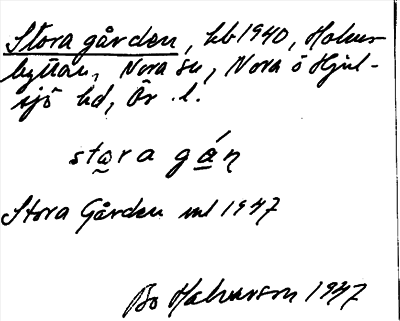 Stora gården, hb 1940, Halvar-
byttan, Nora sn, Nora o Hjul-
sjö hd, Ör. l.
stọra gáη
Stora Gården ml 1947
Bo Halvarson 1947